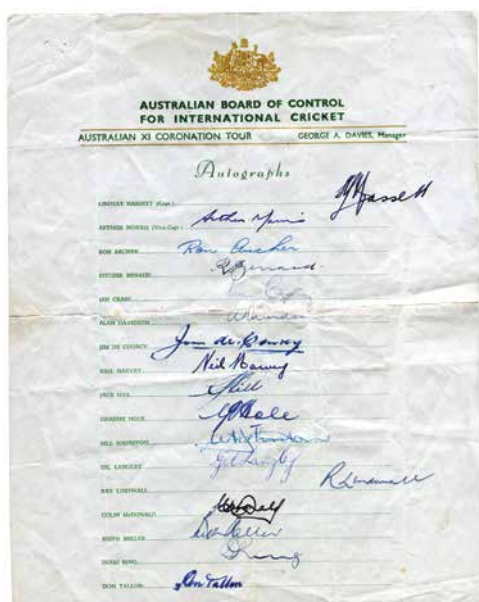 AUSTRALIAN BOARD OF CONTROL
FOR INTERNATIONAL CRICKET
AUSTRALIAN XI CORONATION TOUR GEORGE A. DAVIES, Manager
Autographs
LINDSAY HASSETT (Capt.) Hassett
ARTHUR MORRIS (Vice-Capt.) Arthur Morris
RON ARCHER Ron Archer
RITCHIE BENAUD R Benaud
IAN CRAIG Ian Craig
ALAN DAVIDSON
JIM DE COURCY Jim de Courcy
NEIL HARVEY Neil Harvey
JACK HILL Hill
GRAEME HOLE Hole
BILL JOHNSTON
GIL LANGLEY Gil Langley
RAY LINDWALL R Lindwall
COLIN McDONALD
KEITH MILLER
DOUG RING Ring
DON TALLON Don Tallon